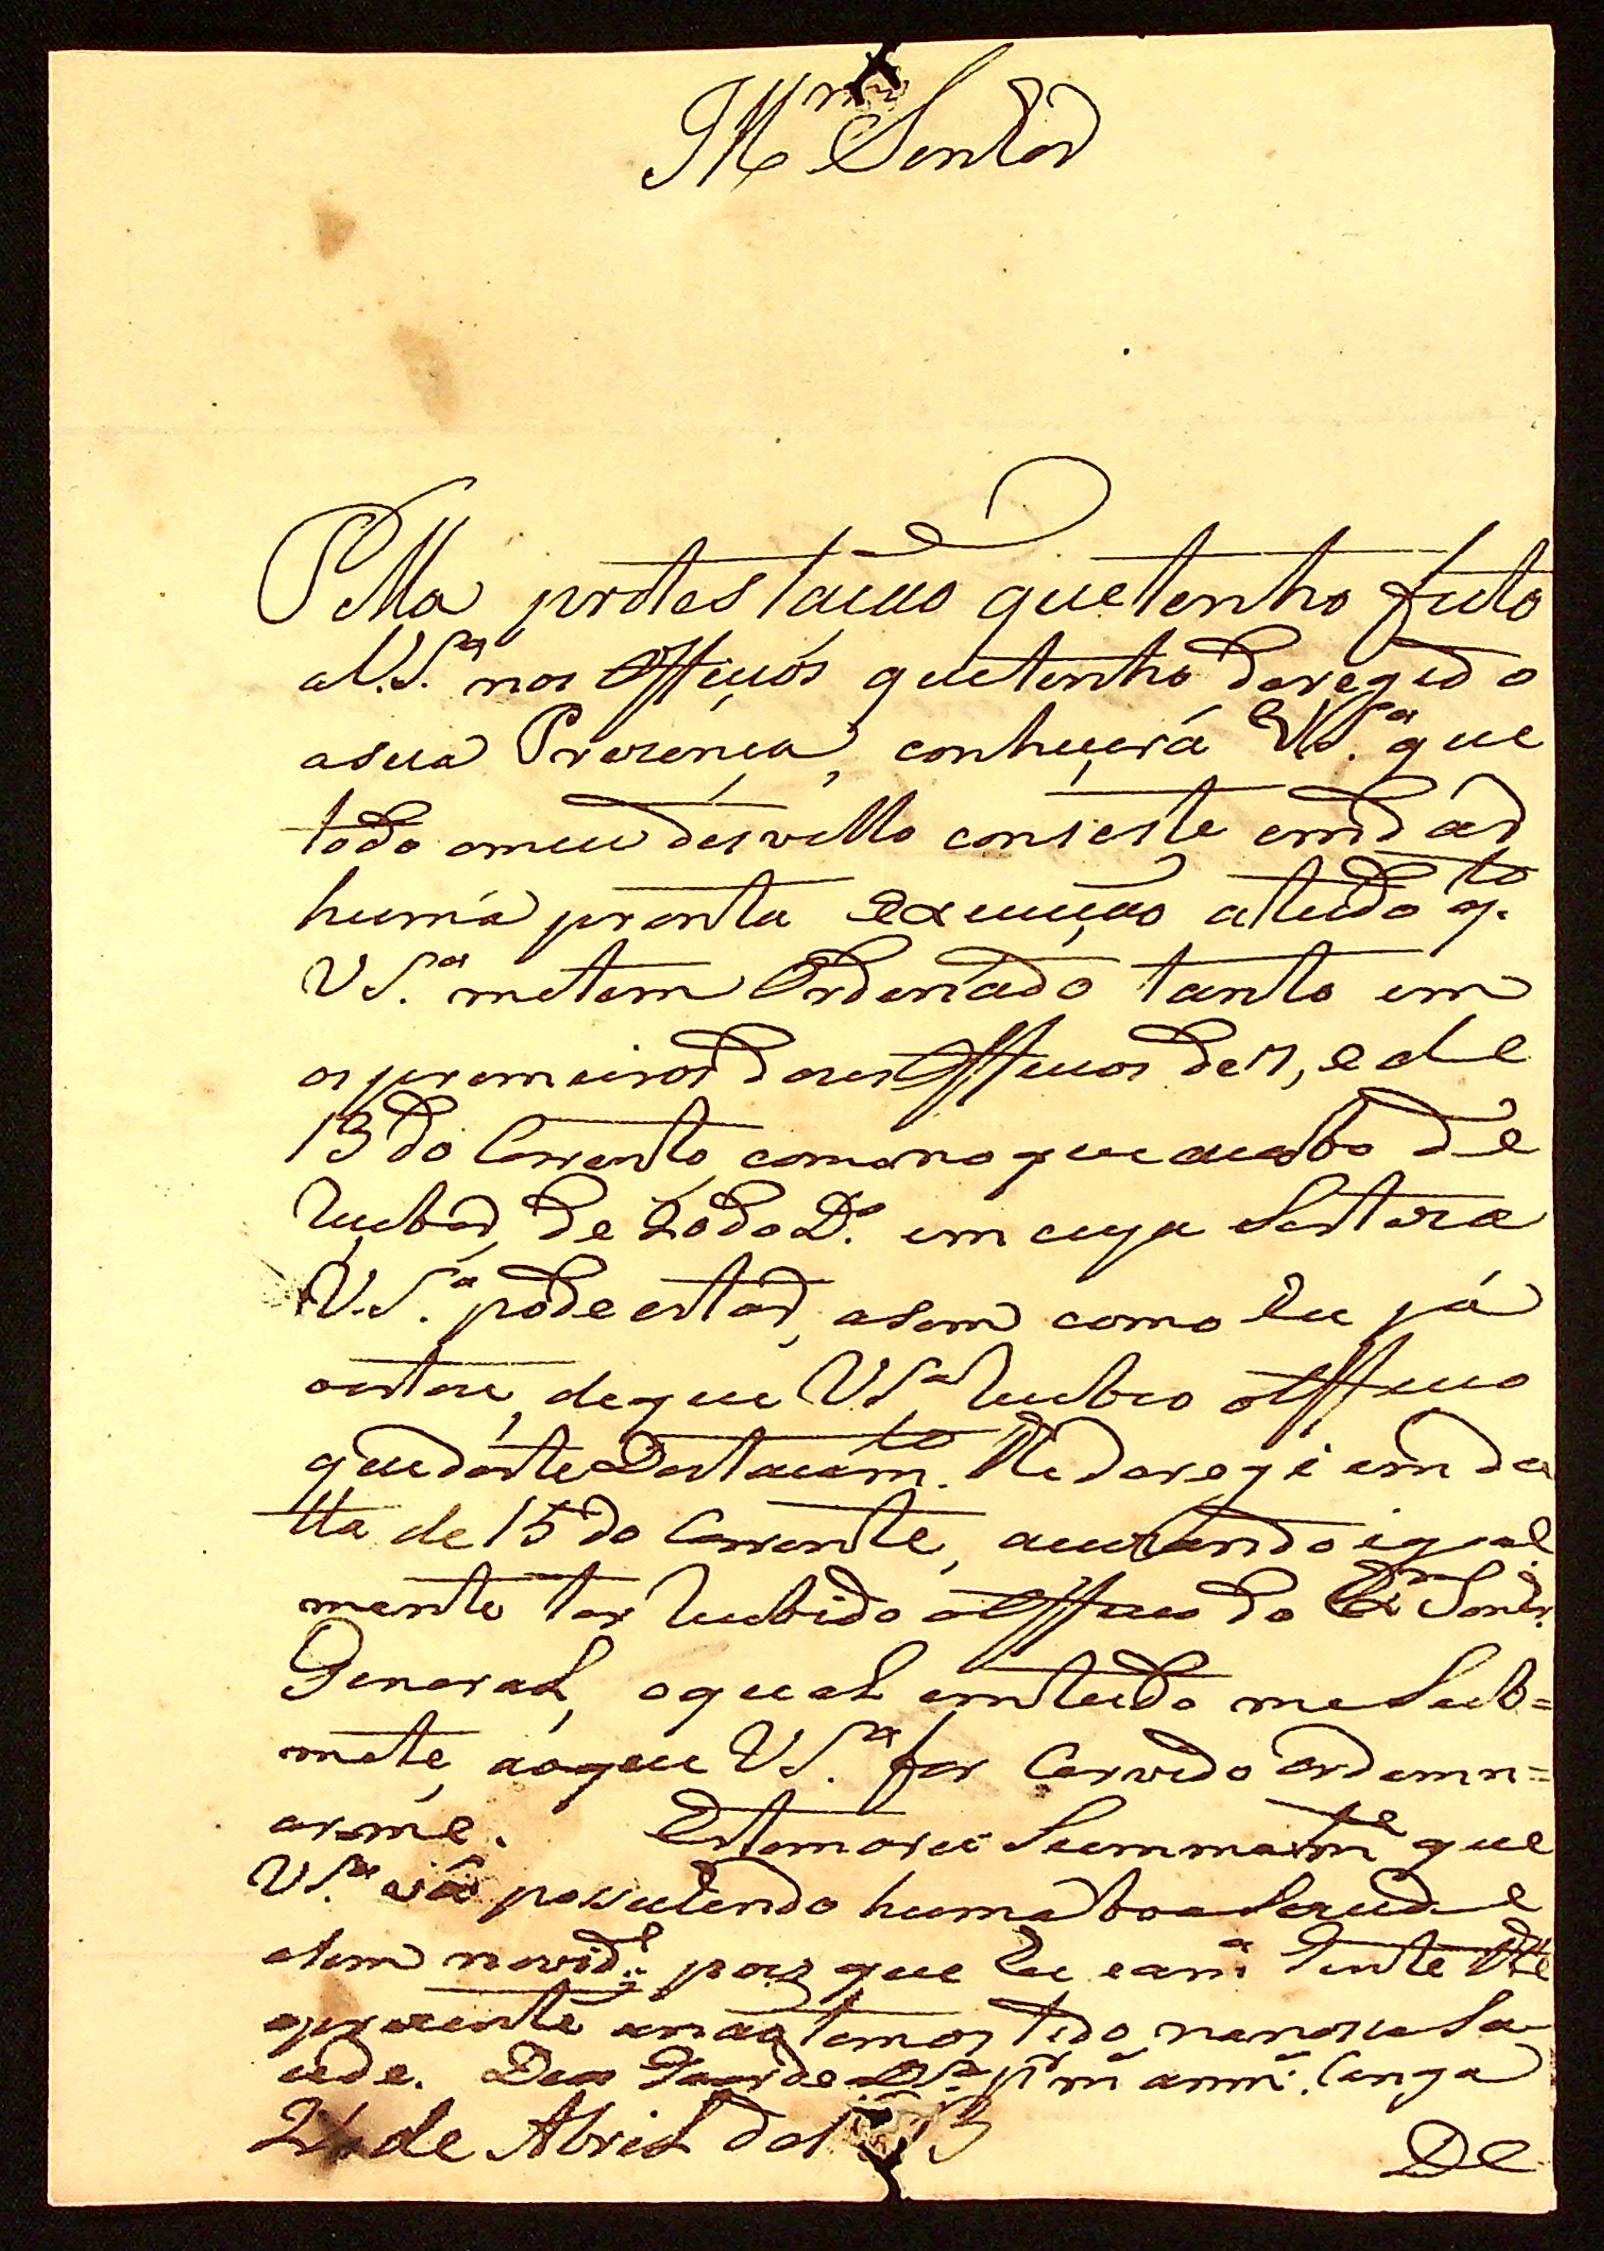 Illmo Senhor
Pella protestacao que tenho feito
a V.S.ª nos Officios que tenho deregido
a sua Prezença, conheçerá V.S.ª que
todo o meu desvello conseste em dar
huma pronta execução a tudo q.to
V.S.ª me tem Ordenado tanto em
os premeiros dous Officios de 7, e de
13 do Corrente, como no que acabo de
reçeber, de 20 do D.º em cuja Serteza
V.S.ª pode estar, asem como Eu já
o estou, de que V.S.ª recebeo o Officio
que deste Destacam.to lhe deregi em da
tta de 15 do Corrente, acuzando igoal
mente ter recebido o Officio do Ex.mo Senhr.
General, o qual em tudo me Sub=
mete, ao que V.S.ª for Cervido ordemn=
ar-me. Estemarei Summam.te que
V.S.ª vá possuiendo huma boa Saude
e sem novid.e pois que Eu e a m.ª Gente the
o prezente a não temos tido na nossa Sa
ude. Deos Guarde a V.S.ª p.r m.s ann.s Canga
24 de Abril de 1 3
De